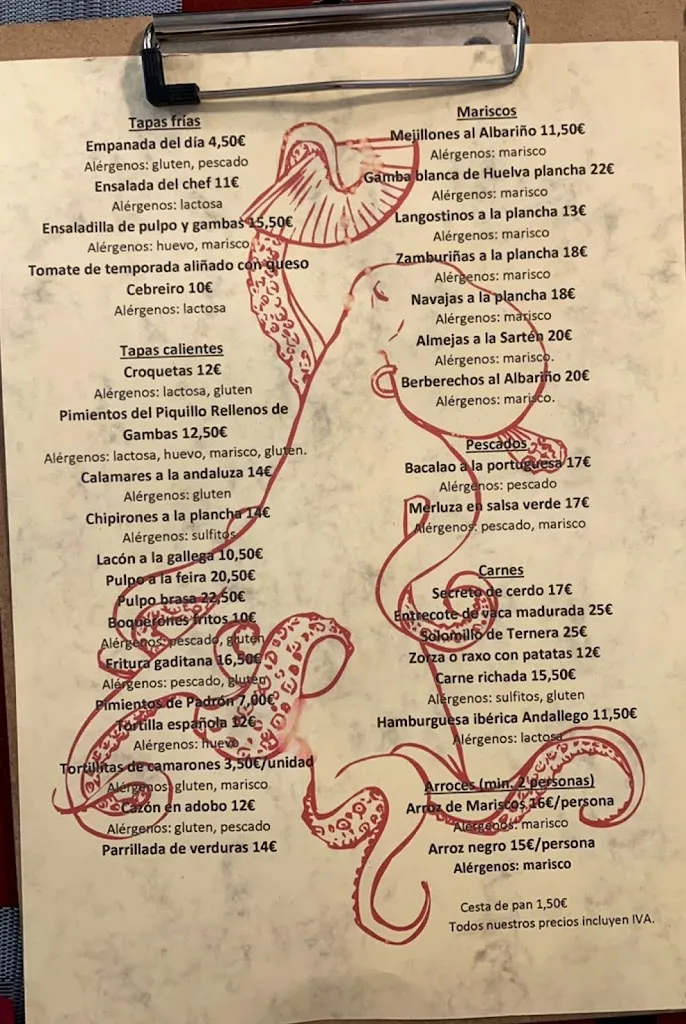 Tapas frías
Empanada del día 4,50€
Alérgenos: gluten, pescado
Ensalada del chef 11€
Alérgenos: lactosa
Ensaladilla de pulpo y gambas 15,50€
Alérgenos: huevo, marisco
Tomate de temporada aliñado con queso
Cebreiro 10€
Alérgenos: lactosa
Tapas calientes
Croquetas 12€
Alérgenos: lactosa, gluten
Pimientos del Piquillo Rellenos de
Gambas 12,50€
Alérgenos: lactosa, huevo, marisco, gluten.
Calamares a la andaluza 14€
Alérgenos: gluten
Chipirones a la plancha 14€
Alérgenos: sulfitos
Lacón a la gallega 10,50€
Pulpo a la feira 20,50€
Pulpo brasa 22,50€
Boquerones fritos 10€
Alérgenos: pescado, gluten
Fritura gaditana 16,50€
Alérgenos: pescado, gluten
Pimientos de Padrón 7,00€
Tortilla española 12€
Alérgenos: huevo
Tortillitas de camarones 3,50€/unidad
Alérgenos: gluten, marisco
Cazón en adobo 12€
Alérgenos: gluten, pescado
Parrillada de verduras 14€
Mariscos
Mejillones al Albariño 11,50€
Alérgenos: marisco
Gamba blanca de Huelva plancha 22€
Alérgenos: marisco
Langostinos a la plancha 13€
Alérgenos: marisco
Zamburiñas a la plancha 18€
Alérgenos: marisco
Navajas a la plancha 18€
Alérgenos: marisco
Almejas a la Sartén 20€
Alérgenos: marisco.
Berberechos al Albariño 20€
Alérgenos: marisco.
Pescados
Bacalao a la portuguesa 17€
Alérgenos: pescado
Merluza en salsa verde 17€
Alérgenos: pescado, marisco
Carnes
Secreto de cerdo 17€
Entrecote de vaca madurada 25€
Solomillo de Ternera 25€
Zorza o raxo con patatas 12€
Carne richada 15,50€
Alérgenos: sulfitos, gluten
Hamburguesa ibérica Andallego 11,50€
Alérgenos: lactosa
Arroces (min. 2 personas)
Arroz de Mariscos 16€/persona
Alérgenos: marisco
Arroz negro 15€/persona
Alérgenos: marisco
Cesta de pan 1,50€
Todos nuestros precios incluyen IVA.